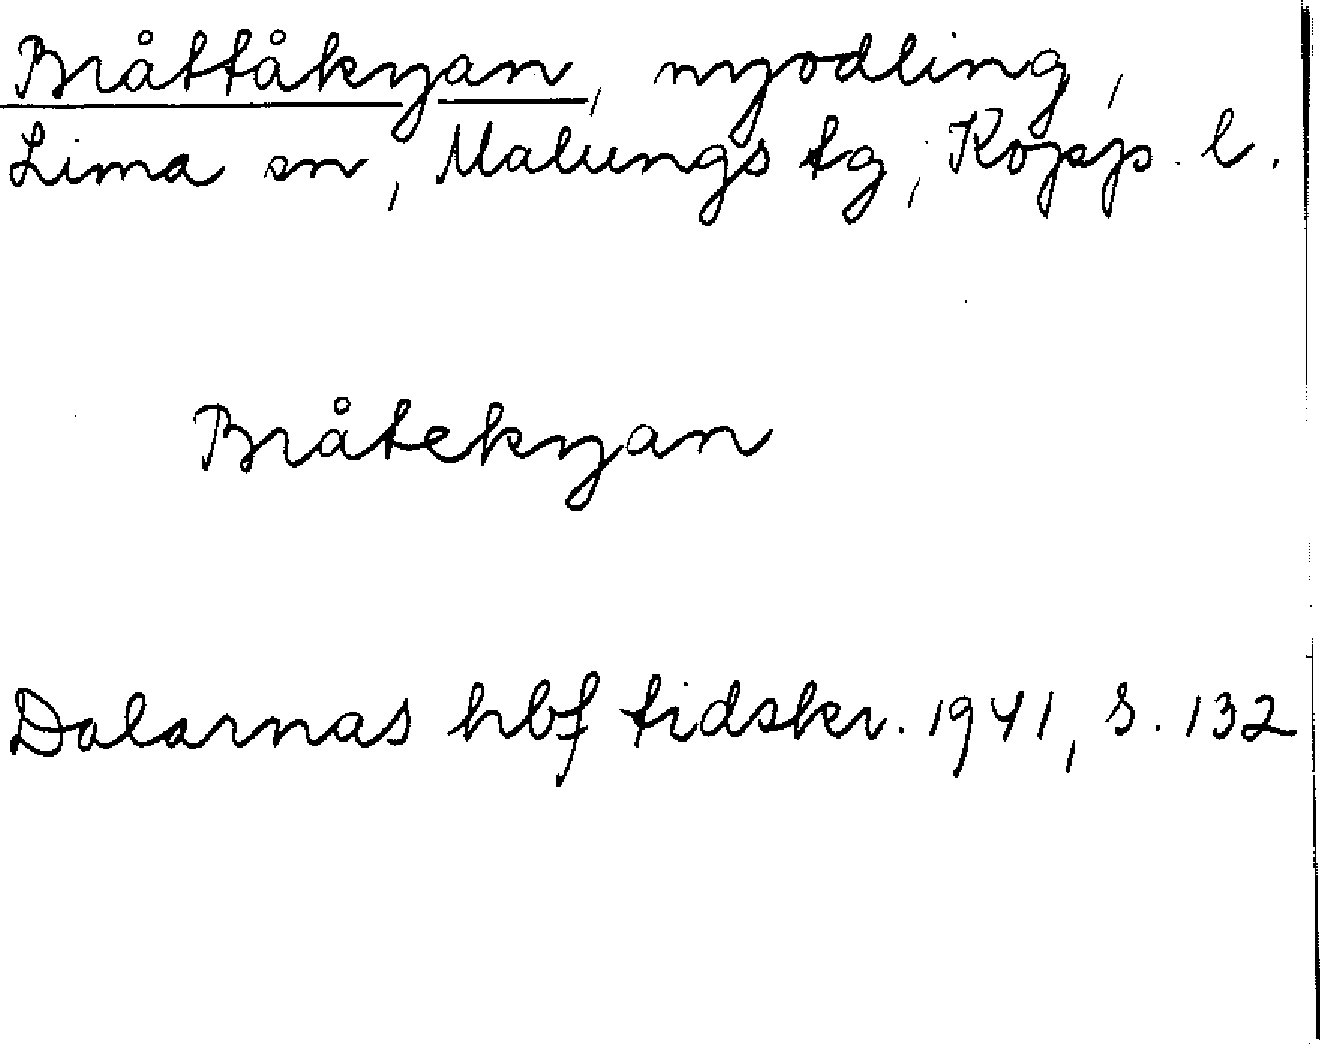 Bråttåkyan, nyodling,
Lima sn, Malungs tg, Kopp. l.
Bråtekyan
Dalarnas hbf tidskr. 1941, s. 132